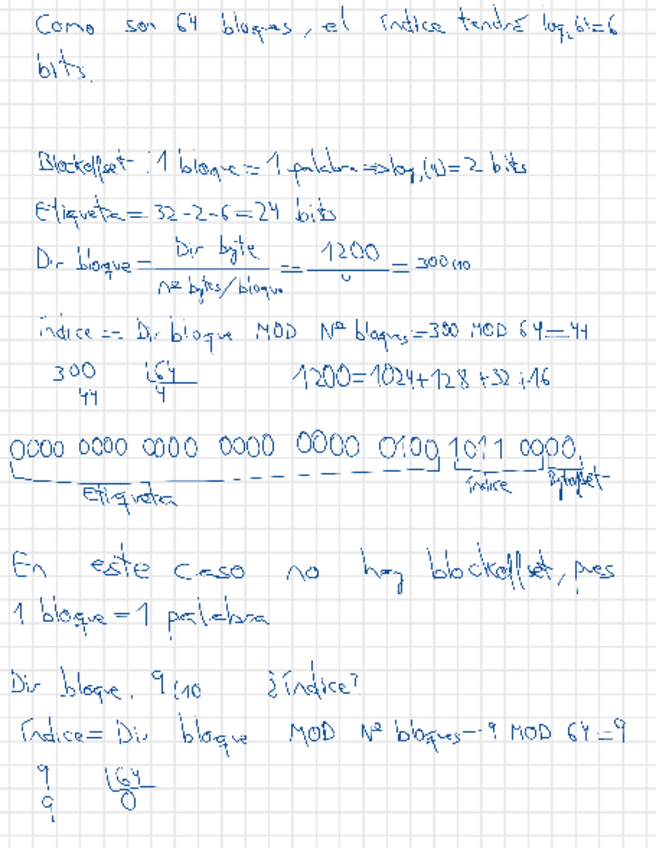 Como son 64 bloques, el índice tendrá log₂64=6
bits.
Blockoffset: 1 bloque = 1 palabra => log₂(4)=2 bits
Etiqueta = 32-2-6=24 bits
Dir bloque = Dir byte / nº bytes/bloque = 1200 / 4 = 300(10
índice = Dir bloque MOD Nº bloques = 300 MOD 64 = 44
300 64 1200=1024+128+32+16
44 4
0000 0000 0000 0000 0000 0100 1011 0000
Etiqueta índice Byteoffset
En este caso no hay blockoffset, pues
1 bloque = 1 palabra
Dir bloque. 9(10 ¿índice?
índice = Dir bloque MOD Nº bloques = 9 MOD 64 = 9
9 64
9 0